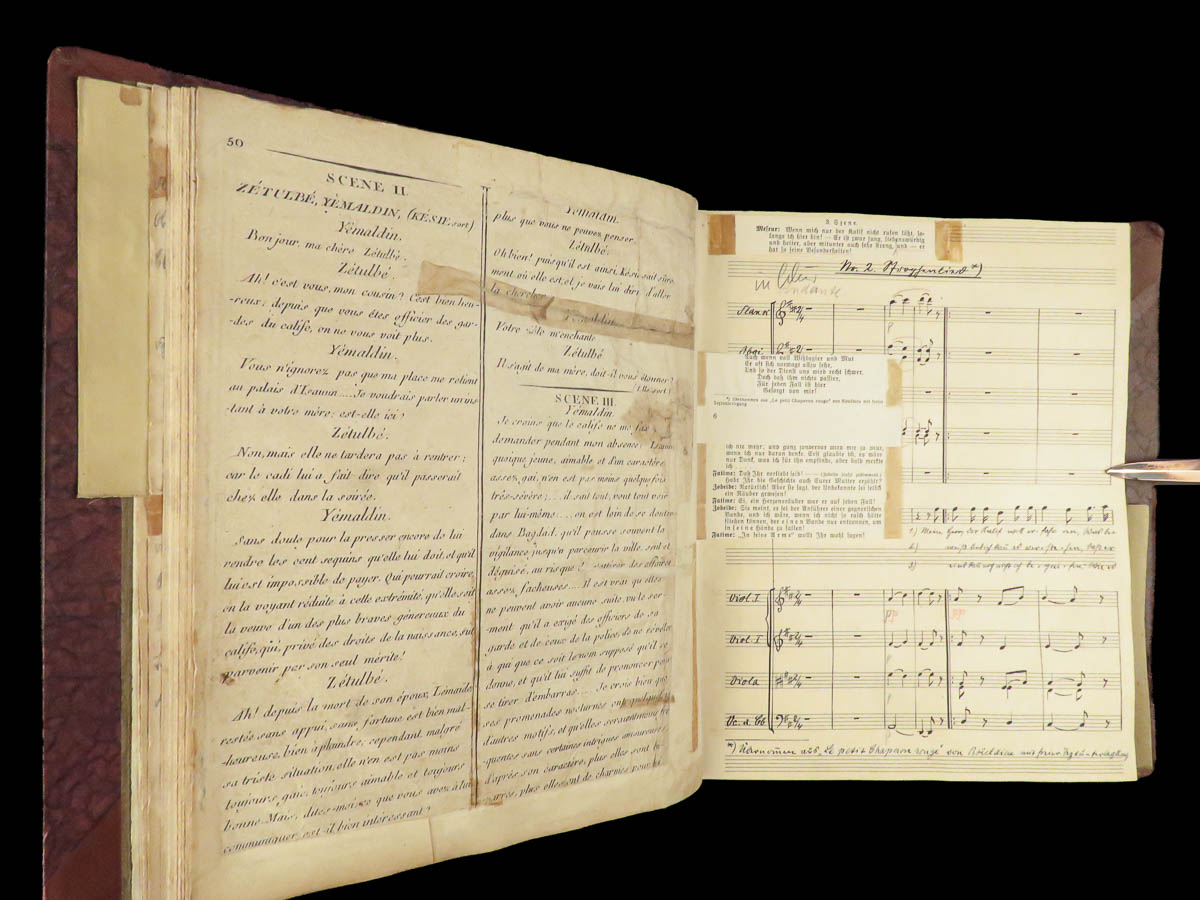 50
SCENE II.
ZÉTULBÉ, YÈMALDIN, (KÉSIE sort)
Yèmaldin.
Bonjour, ma chère Zétulbé.
Zétulbé.
Ah! c'est vous, mon cousin? C'est bien heu-
reux; depuis que vous êtes officier des gar-
des du calife, on ne vous voit plus.
Yèmaldin.
Vous n'ignorez pas que ma place me retient
au palais d'Isauun.... Je voudrais parler un ins-
tant à votre mère: est-elle ici?
Zétulbé.
Non, mais elle ne tardera pas à rentrer;
car le cadi lui a fait dire qu'il passerait
chez elle dans la soirée.
Yèmaldin.
Sans doute pour la presser encore de lui
rendre les cent sequins qu'elle lui doit, et qu'il
lui est impossible de payer. Qui pourrait croire,
en la voyant réduite à cette extrémité, qu'elle soit
la veuve d'un des plus braves généreaux du
calife, qui, privé des droits de la naissance, sut
parvenir par son seul mérite!
Zétulbé.
Ah! depuis la mort de son époux, Lémaïde
restée sans appui, sans fortune est bien mal-
heureuse, bien à plaindre; cependant malgré
sa triste situation, elle n'en est pas moins
toujours gaie, toujours aimable et toujours
bonne. Mais, dites-moi, ce que vous avez à lui
communiquer, est-il bien intéressant?
Yèmaldin.
plus que vous ne pouvez penser.
Zétulbé.
Oh bien! puisqu'il est ainsi, Késie sait sûre-
ment où elle est, et je vais lui dire d'aller
la chercher.
Yèmaldin.
Votre zèle m'enchante
Zétulbé
Il s'agit de ma mère, doit-il vous étonner?
(Elle sort.)
SCENE III.
Yèmaldin.
Je crains que le calife ne me fasse
demander pendant mon absence:
quoique jeune, aimable et d'un caractère
assez gai, n'en est pas moins quelquefois
très-sévère;.... il sait tout, veut tout voir
par lui-même.... on est loin de se douter
dans Bagdad, qu'il pousse souvent la
vigilance, jusqu'à parcourir la ville, seul et
déguisé, au risque de s'attirer des affaires
assez fâcheuses.... Il est vrai qu'elles
ne peuvent avoir aucune suite, vu le ser-
ment qu'il a exigé des officiers de sa
garde et de ceux de la police, de ne révéler
à qui que ce soit le nom supposé qu'il se
donne, et qu'il lui suffit de prononcer pour
se tirer d'embarras.... Je crois bien que
ses promenades nocturnes ont quelquefois
d'autres motifs, et qu'elles seraient moins fré-
quentes sans certaines intrigues amoureuses:
d'après son caractère, plus elles sont bi-
zarres, plus elles ont de charmes pour lui.
3. Szene.
Mesrur: Wenn mich nur der Kalif nicht rufen läßt, so-
lange ich hier bin! — Er ist zwar jung, liebenswürdig
und heiter, aber mitunter auch sehr streng, und — er
hat so seine Besonderheiten!
No. 2. Strophenlied *)
Andante
Auch wenn voll Wißbegier und Mut
Er oft sich vorwagt allzu sehr.
Und so der Dienst uns wird recht schwer.
Doch daß ihm nichts passier,
Für jeden Fall ist hier
Gesorgt von mir!
*) Übernommen aus „Le petit Chaperon rouge" von Boieldieu mit freier
Textunterlegung
6
ich nie mehr, und ganz sonderbar wird mir zu Mut,
wenn ich nur daran denke. Erst glaubte ich, es wäre
nur Dank, was ich für ihn empfinde, aber bald merkte
ich —
Fatime: Daß Ihr verliebt seid! —
habt Ihr die Geschichte auch Eurer Mutter erzählt?
Zobeide: Natürlich! Aber sie sagt, der Unbekannte sei selbst
ein Räuber gewesen!
Fatime: Ei, ein Herzensräuber war er auf jeden Fall!
Zobeide: Sie meint, er sei der Anführer einer gegnerischen
Bande, und ich wäre, wenn ich nicht so rasch hätte
fliehen können, der einen Bande nur entronnen, um
in seine Hände zu fallen!
Fatime: „In seine Arme" wollt Ihr wohl sagen!
1.)
2.)
3)
Viol. I
pp
pp
Viol. I
Viola
Vc. u. Cb
*) Übernommen aus „Le petit Chaperon rouge" von Boieldieu mit freier Textunterlegung